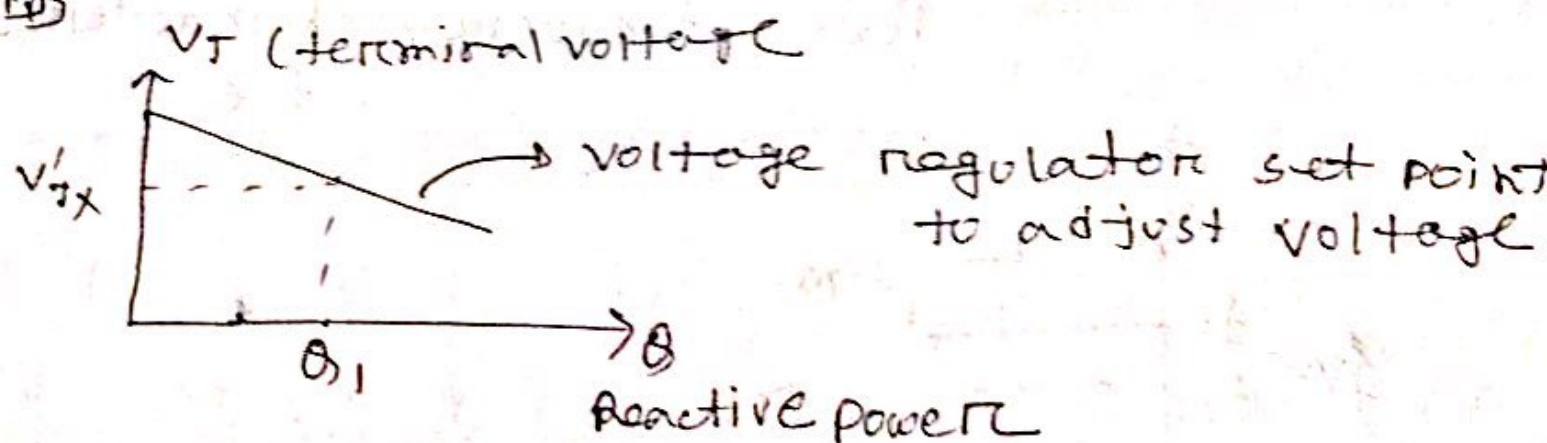 V_T (terminal voltage
voltage regulator set point
to adjust voltage
Q_1
Q
Reactive power